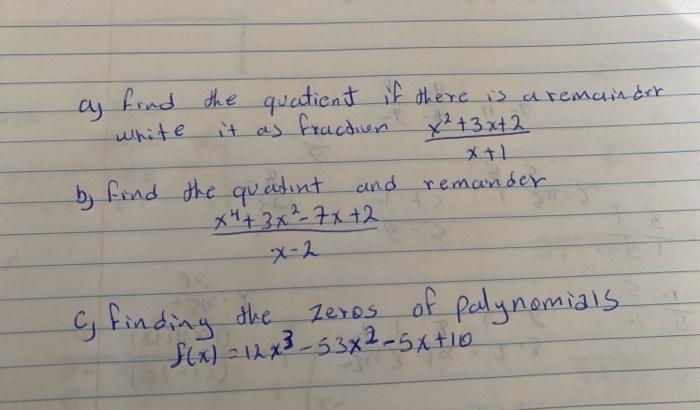 a) find the quatient if there is a remainder
write it as fraction x²+3x+2
x+1
b) find the quatint and remander
x⁴+3x²-7x+2
x-2
c) finding the zeros of palynomials
f(x) = 12x³-53x²-5x+10